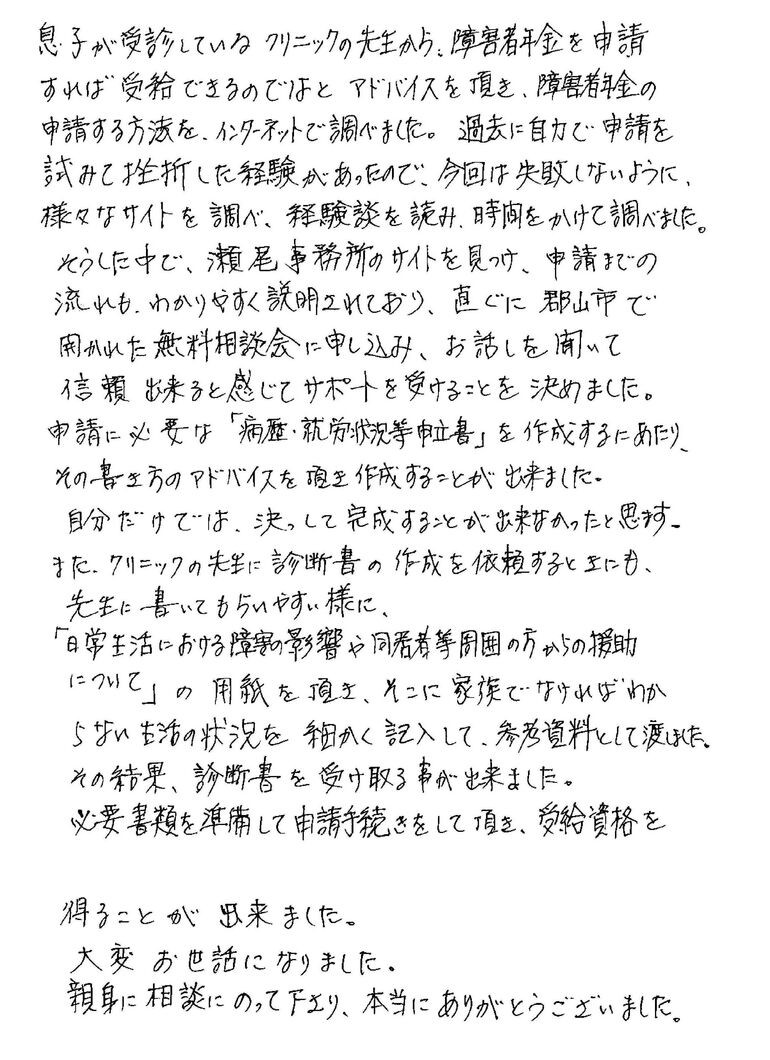 息子が受診している クリニックの先生から、障害者年金を申請
すれば 受給できるのではと アドバイスを頂き、障害者年金の
申請する方法を、インターネットで調べました。 過去に自力で申請を
試みて挫折した経験があったので、今回は失敗しないように、
様々なサイトを調べ、経験談を読み、時間をかけて調べました。
そうした中で、瀬尾事務所のサイトを見つけ、申請までの
流れも、わかりやすく説明されており、直ぐに 郡山市で
開かれた無料相談会に申し込み、お話しを聞いて
信頼 出来ると感じてサポートを受けることを 決めました。
申請に必要な「病歴・就労状況等申立書」を作成するにあたり、
その書き方のアドバイスを頂き作成することが出来ました。
自分だけでは、決っして完成することが出来なかったと思ます。
また、クリニックの先生に診断書の作成を依頼するときにも、
先生に書いてもらいやすい様に、
「日常生活における障害の影響や同居者等周囲の方からの援助
について」の用紙を頂き、そこに家族でなければわか
らない生活の状況を細かく記入して、参考資料として渡しました。
その結果、診断書を受け取る事が出来ました。
必要書類を準備して申請手続きをして頂き、受給資格を
得ることが 出来ました。
大変お世話になりました。
親身に相談にのって下さり、本当にありがとうございました。